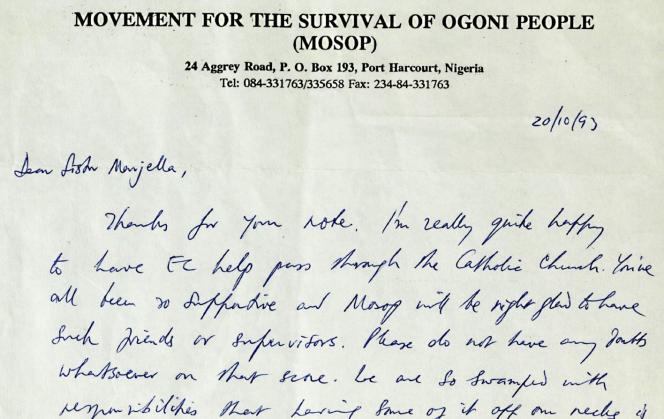 MOVEMENT FOR THE SURVIVAL OF OGONI PEOPLE
(MOSOP)
24 Aggrey Road, P. O. Box 193, Port Harcourt, Nigeria
Tel: 084-331763/335658 Fax: 234-84-331763
20/10/93
Dear Sister Marjella,
Thanks for your note. I'm really quite happy
to have EC help pass through the Catholic Church. You've
all been so supportive and Mosop will be right glad to have
such friends or supervisors. Please do not have any doubts
whatsoever on that score. We are so swamped with
responsibilities that having some of it off our necks is